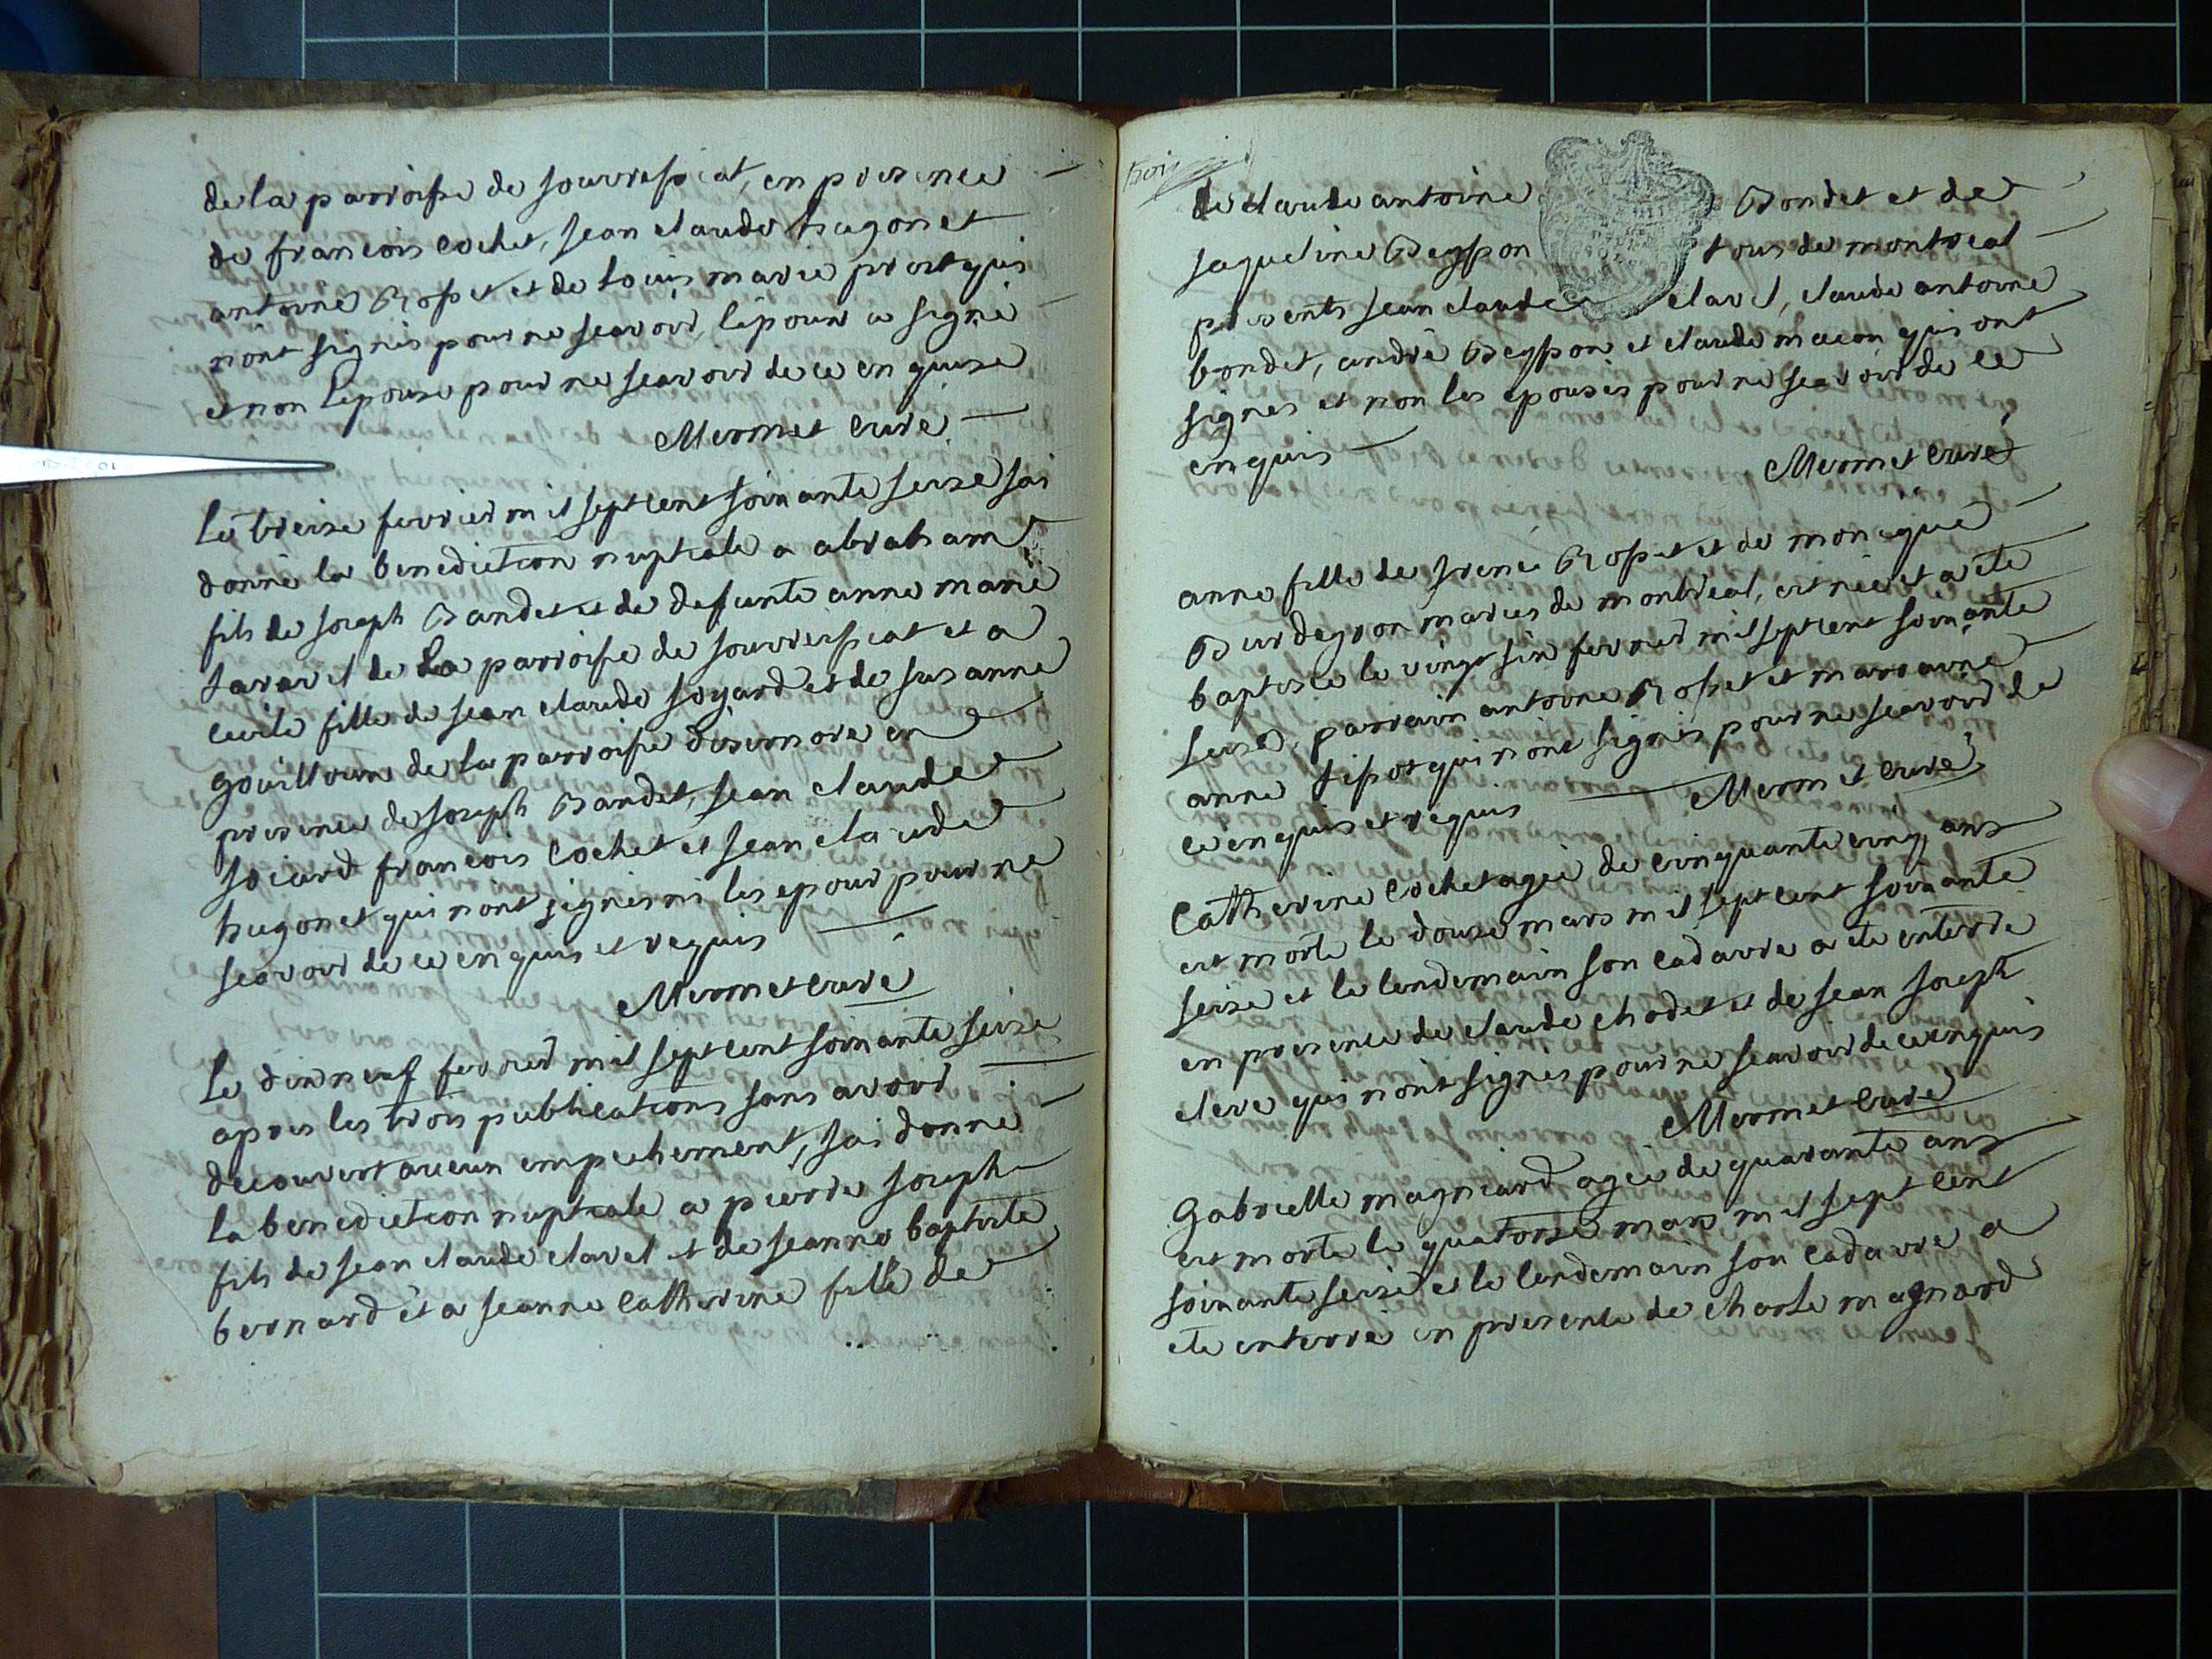 de la parroisse de souvressiat, en presence
de francois cochet, jean claude hugonet
antoine Rosset et de louis marie prost qui
n'ont signés pour ne scavoir, l'epoux a signé
et non l'epouse pour ne scavoir de ce enquise
Mermet curé
Le treise fevrier mil sept cent soixante seise j'ai
donné la benediction nuptiale a abraham
fils de joseph Bandet et de defunte anne marie
Tavaret de La parroisse de souvressiat et a
cecile fille de jean claude joyard et de susanne
gouilloux de la parroisse d'isernore en
presence de joseph Bandet, jean claude
joiard francois cochet et jean claude
hugonet qui n'ont signés ni les epoux pour ne
scavoir de ce enquis et requis
Mermet curé
Le dixneuf fevrier mil sept cent soixante seise
apres les trois publications sans avoir
decouvert aucun empechement, j'ai donné
la benediction nuptiale a pierre joseph
fils de jean claude clavel et de jeanne baptiste
bernard et a jeanne catherine fille de
trois
de claude antoine Bondet et de
jaqueline Beysson tous de montreal
presents jean claude clavel, claude antoine
bondet, andré Beysson et claude macon qui ont
signes et non les epouses pour ne scavoir de ce
enquis
Mermet curé
anne fille de irené Rosset et de monique
Burdeyron mariés de montreal, est née et a ete
baptisée le vingt six fevrier mil sept cent soixante
seise, parrain antoine Rosset et marraine
anne qui n'ont signés pour ne scavoir de
ce enquis et requis Mermet curé
Catherine Cochet agée de cinquante cinq ans
est morte le douse mars mil sept cent soixante
seise et le lendemain son cadavre a ete enterré
en presence de claude chodet et de jean joseph
clere qui n'ont signés pour ne scavoir de ce enquis
Mermet curé
Gabrielle magniard agée de quarante ans
est morte le quatorse mars mil sept cent
soixante seise et le lendemain son cadavre a
ete enterré en presence de charle magnard